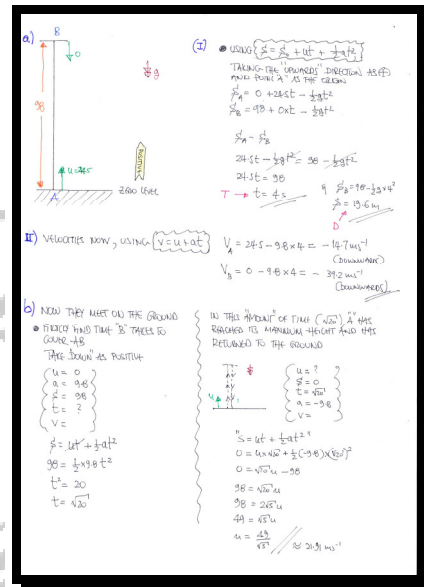 a)
B
0
g
98
POSITIVE
u=24.5
A
ZERO LEVEL
(I) • USING { S = S₀ + ut + ½at² }
TAKING THE "UPWARDS" DIRECTION AS ⊕
AND POINT "A" AS THE ORIGIN
S_A = 0 + 24.5t - ½gt²
S_B = 98 + 0×t - ½gt²
S_A = S_B
24.5t - ½gt² = 98 - ½gt²
24.5t = 98
T → t = 4s
& S_B = 98 - ½g×4²
S = 19.6 m
D
II) VELOCITIES NOW, USING { v = u + at }
V_A = 24.5 - 9.8×4 = -14.7 ms⁻¹
(DOWNWARDS)
V_B = 0 - 9.8×4 = -39.2 ms⁻¹
(DOWNWARDS)
b) NOW THEY MEET ON THE GROUND
• FIRSTLY FIND TIME "B" TAKES TO
COVER AB
TAKE "DOWN" AS POSITIVE
u = 0
a = 9.8
S = 98
t = ?
V =
S = ut + ½at²
98 = ½×9.8t²
t² = 20
t = √20
IN THIS "AMOUNT" OF TIME (√20), "A" HAS
REACHED ITS MAXIMUM HEIGHT AND HAS
RETURNED TO THE GROUND
u
u = ?
S = 0
t = √20
a = -9.8
V =
"S = ut + ½at²"
0 = u×√20 + ½(-9.8)×(√20)²
0 = √20 u - 98
98 = √20 u
98 = 2√5 u
49 = √5 u
u = 49/√5 ≈ 21.91 ms⁻¹